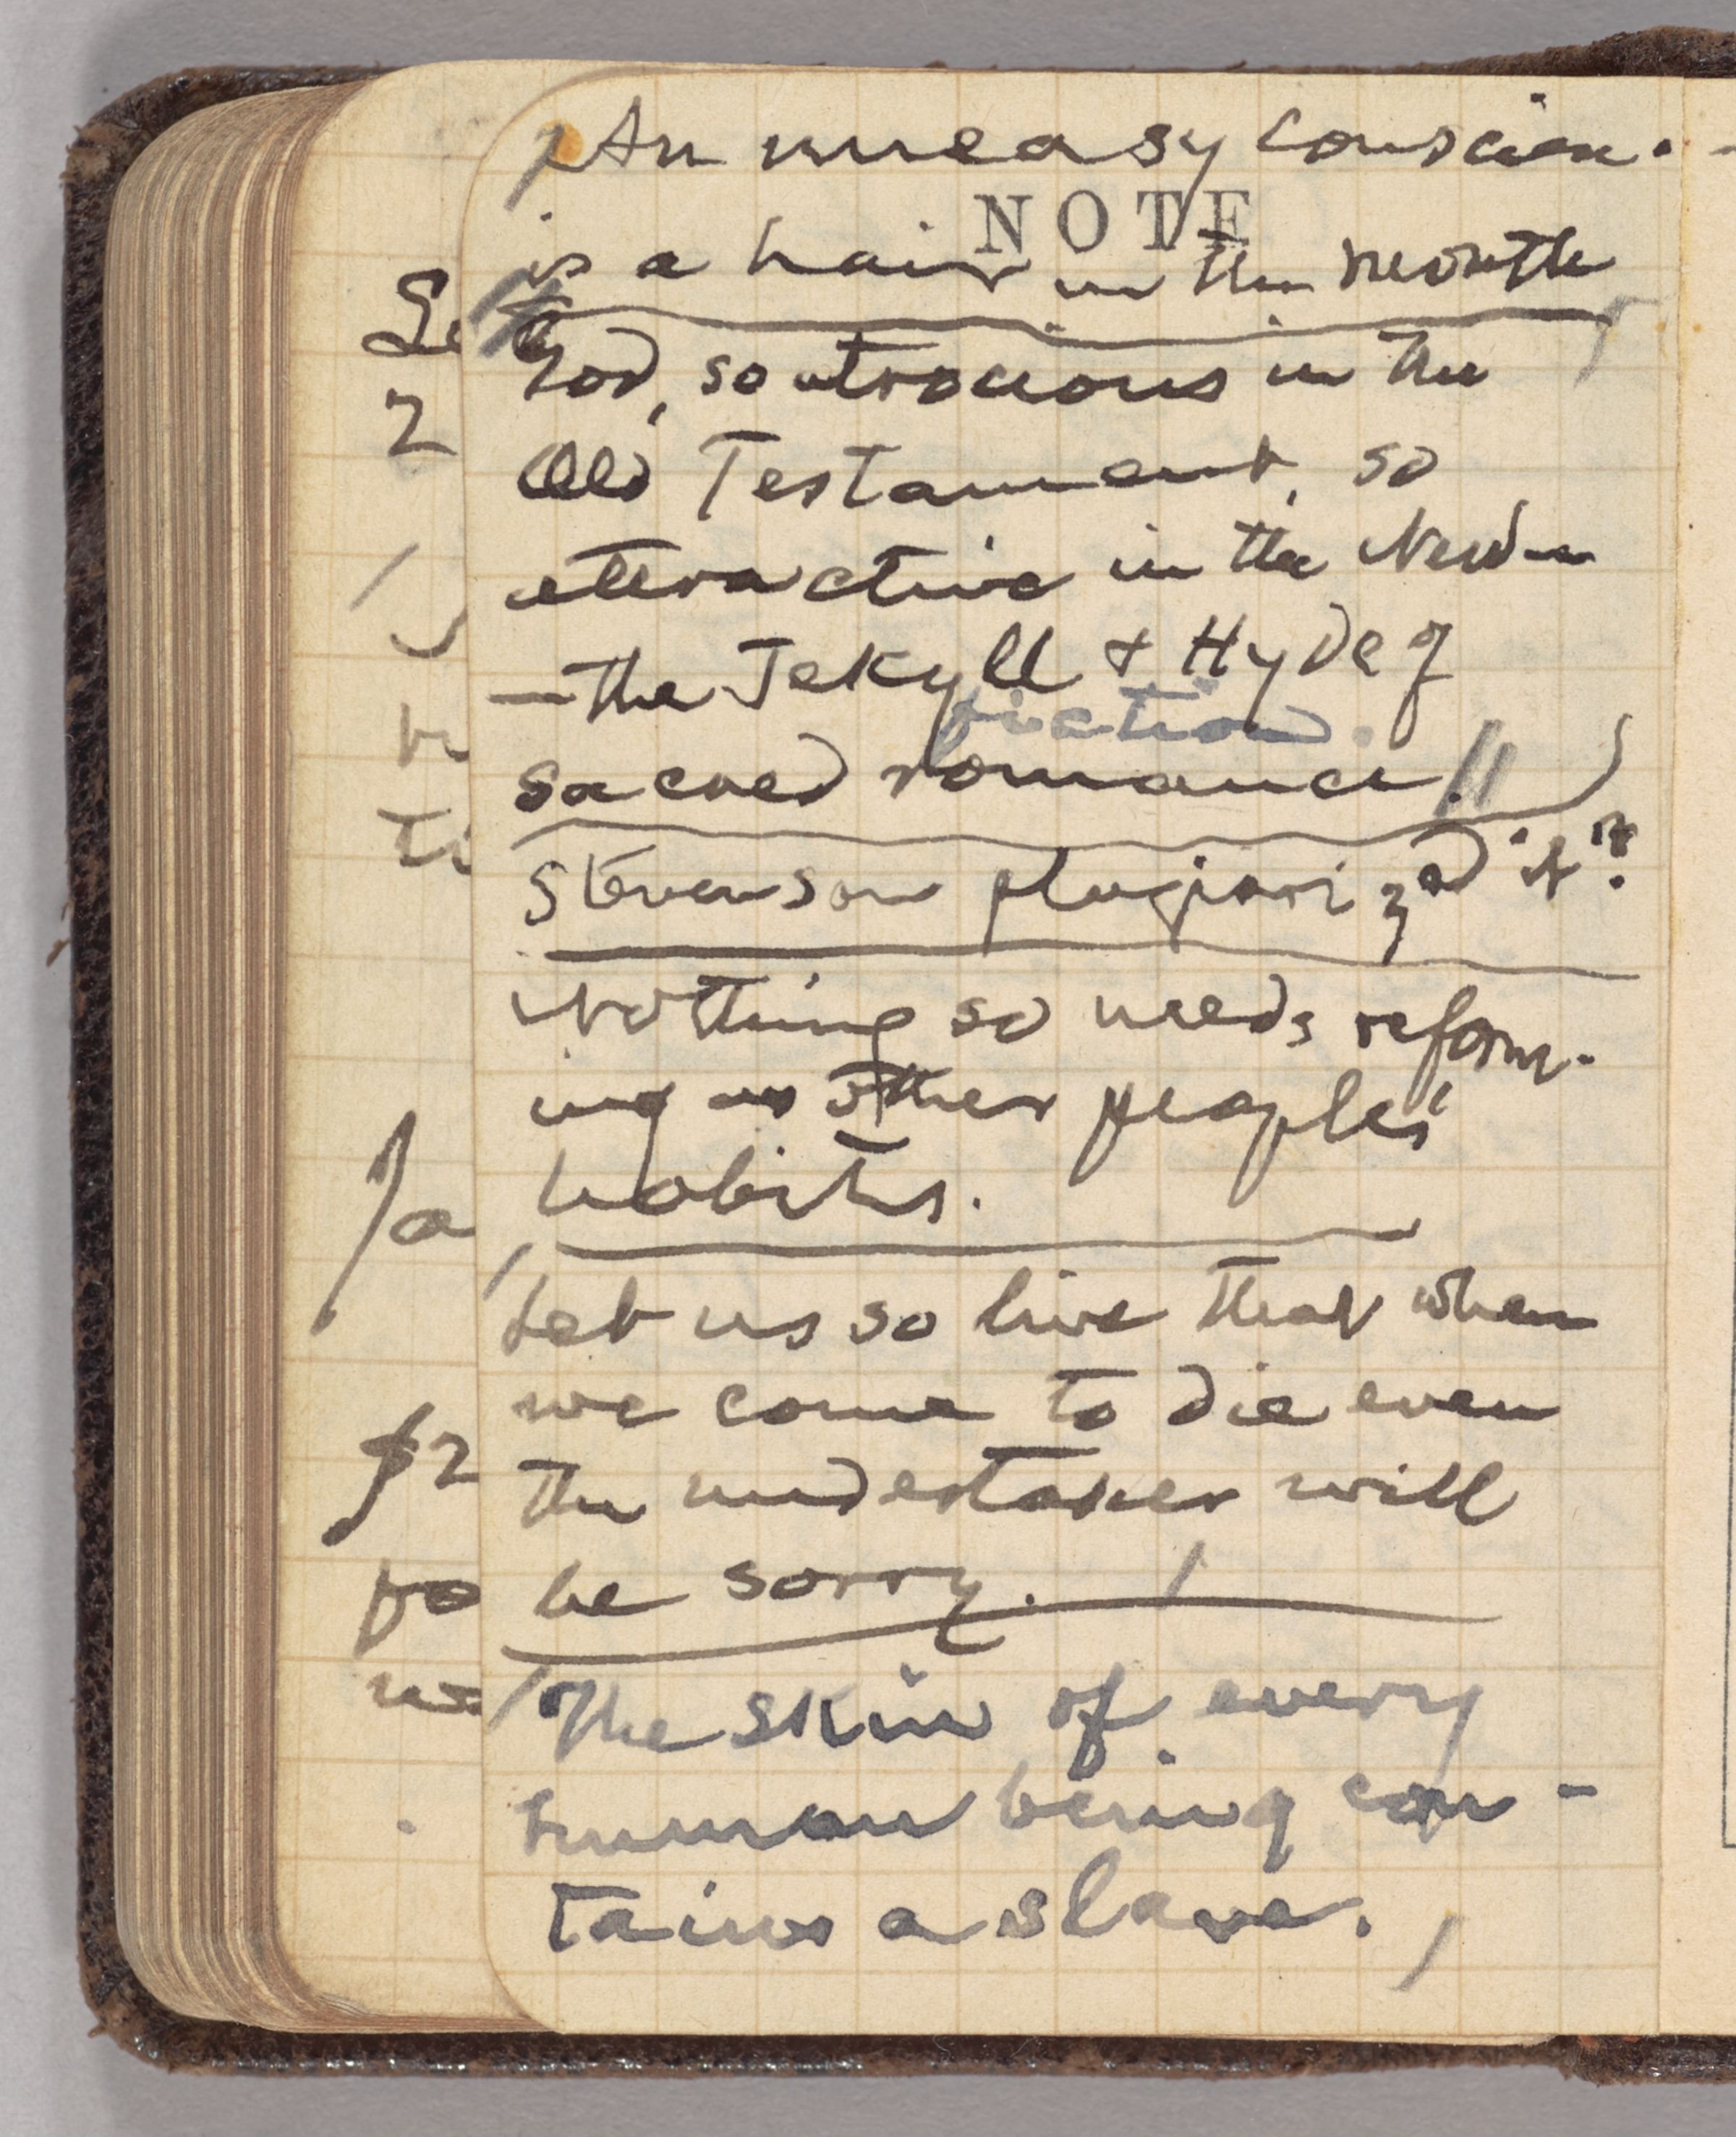 An uneasy conscien-
NOTE
is a hair in the mouth
God, so atrocious in the
Old Testament, so
attractive in the New—
—the Jekyll & Hyde of
fiction.
sacred romance.
Stevenson plagiarized it?
Nothing so needs reform-
ing as other people's
habits.
Let us so live that when
we come to die even
the undertaker will
be sorry.
The skin of every
human being con-
tains a slave.